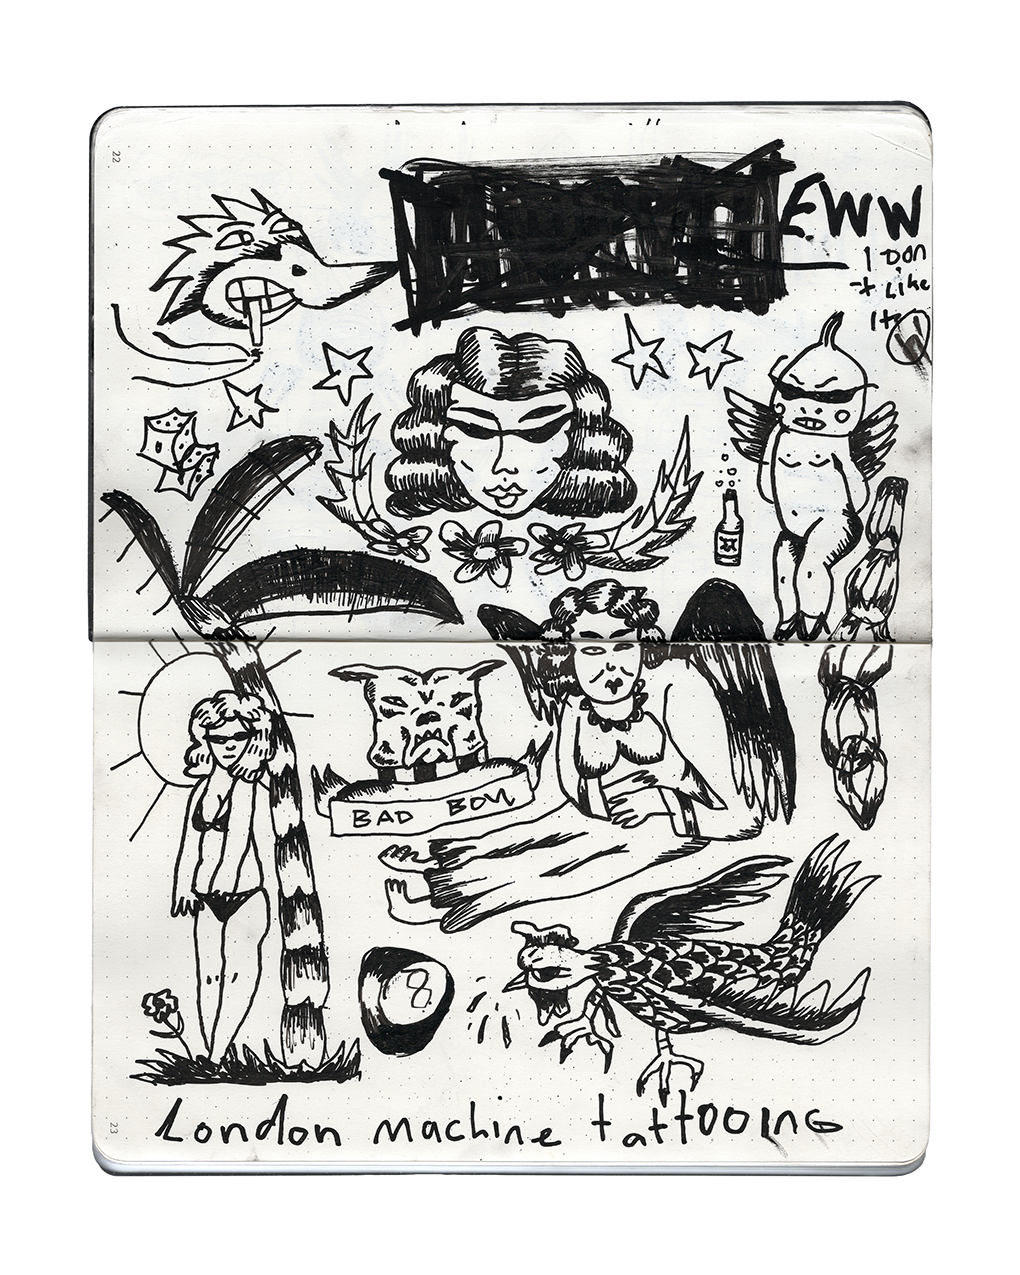 22
EWW
I DON
t Like
It
BAD BOY
8
23
London machine tattooing